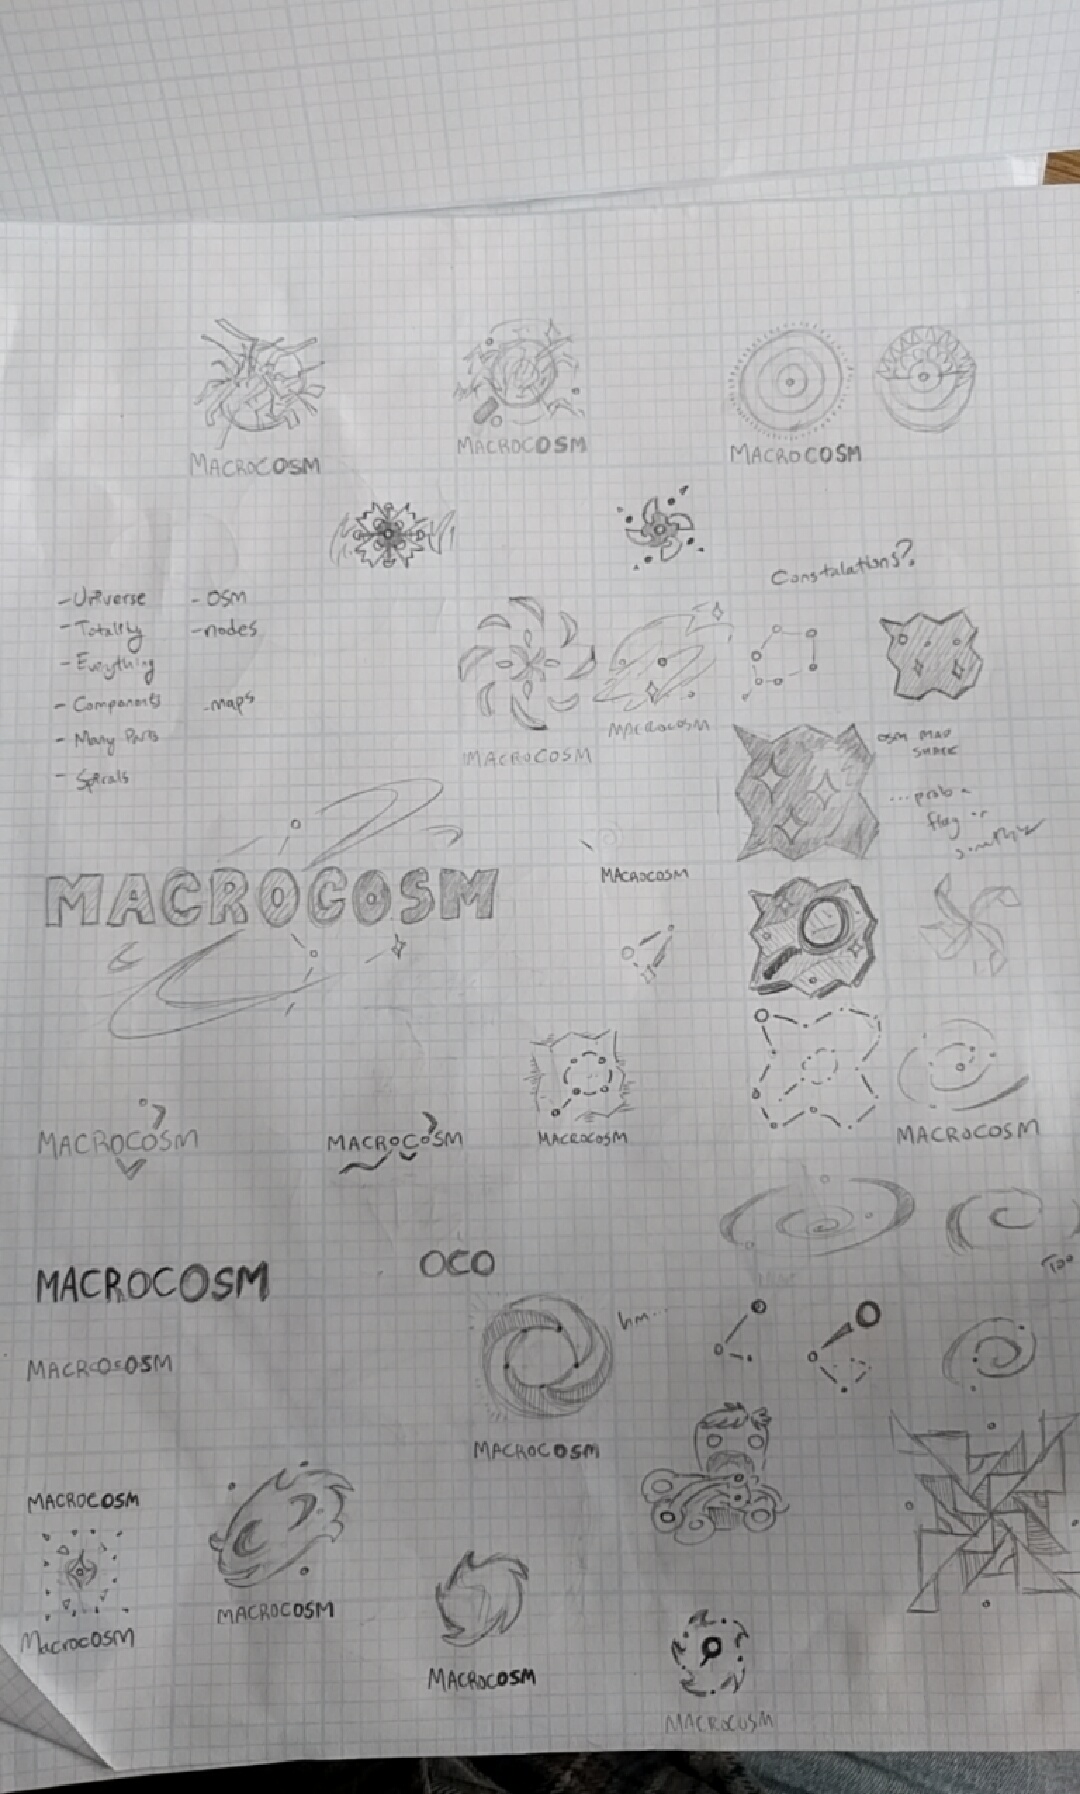 MACROCOSM
MACROCOSM
MACROCOSM
Constalations?
-Universe
-Totality
-Everything
-Components
-Many Parts
-Spirals
-OSM
-nodes
-maps
MACROCOSM
MACROCOSM
OSM MAP
SHAPE
...prob a
flag or
MACROCOSM
MACROCOSM
MACROCOSM
MACROCOSM
MACROCOSM
MACROCOSM
MACROCOSM
OCO
Too
hm...
MACROCOSM
MACROCOSM
MACROCOSM
MACROCOSM
Macrocosm
MACROCOSM
MACROCOSM